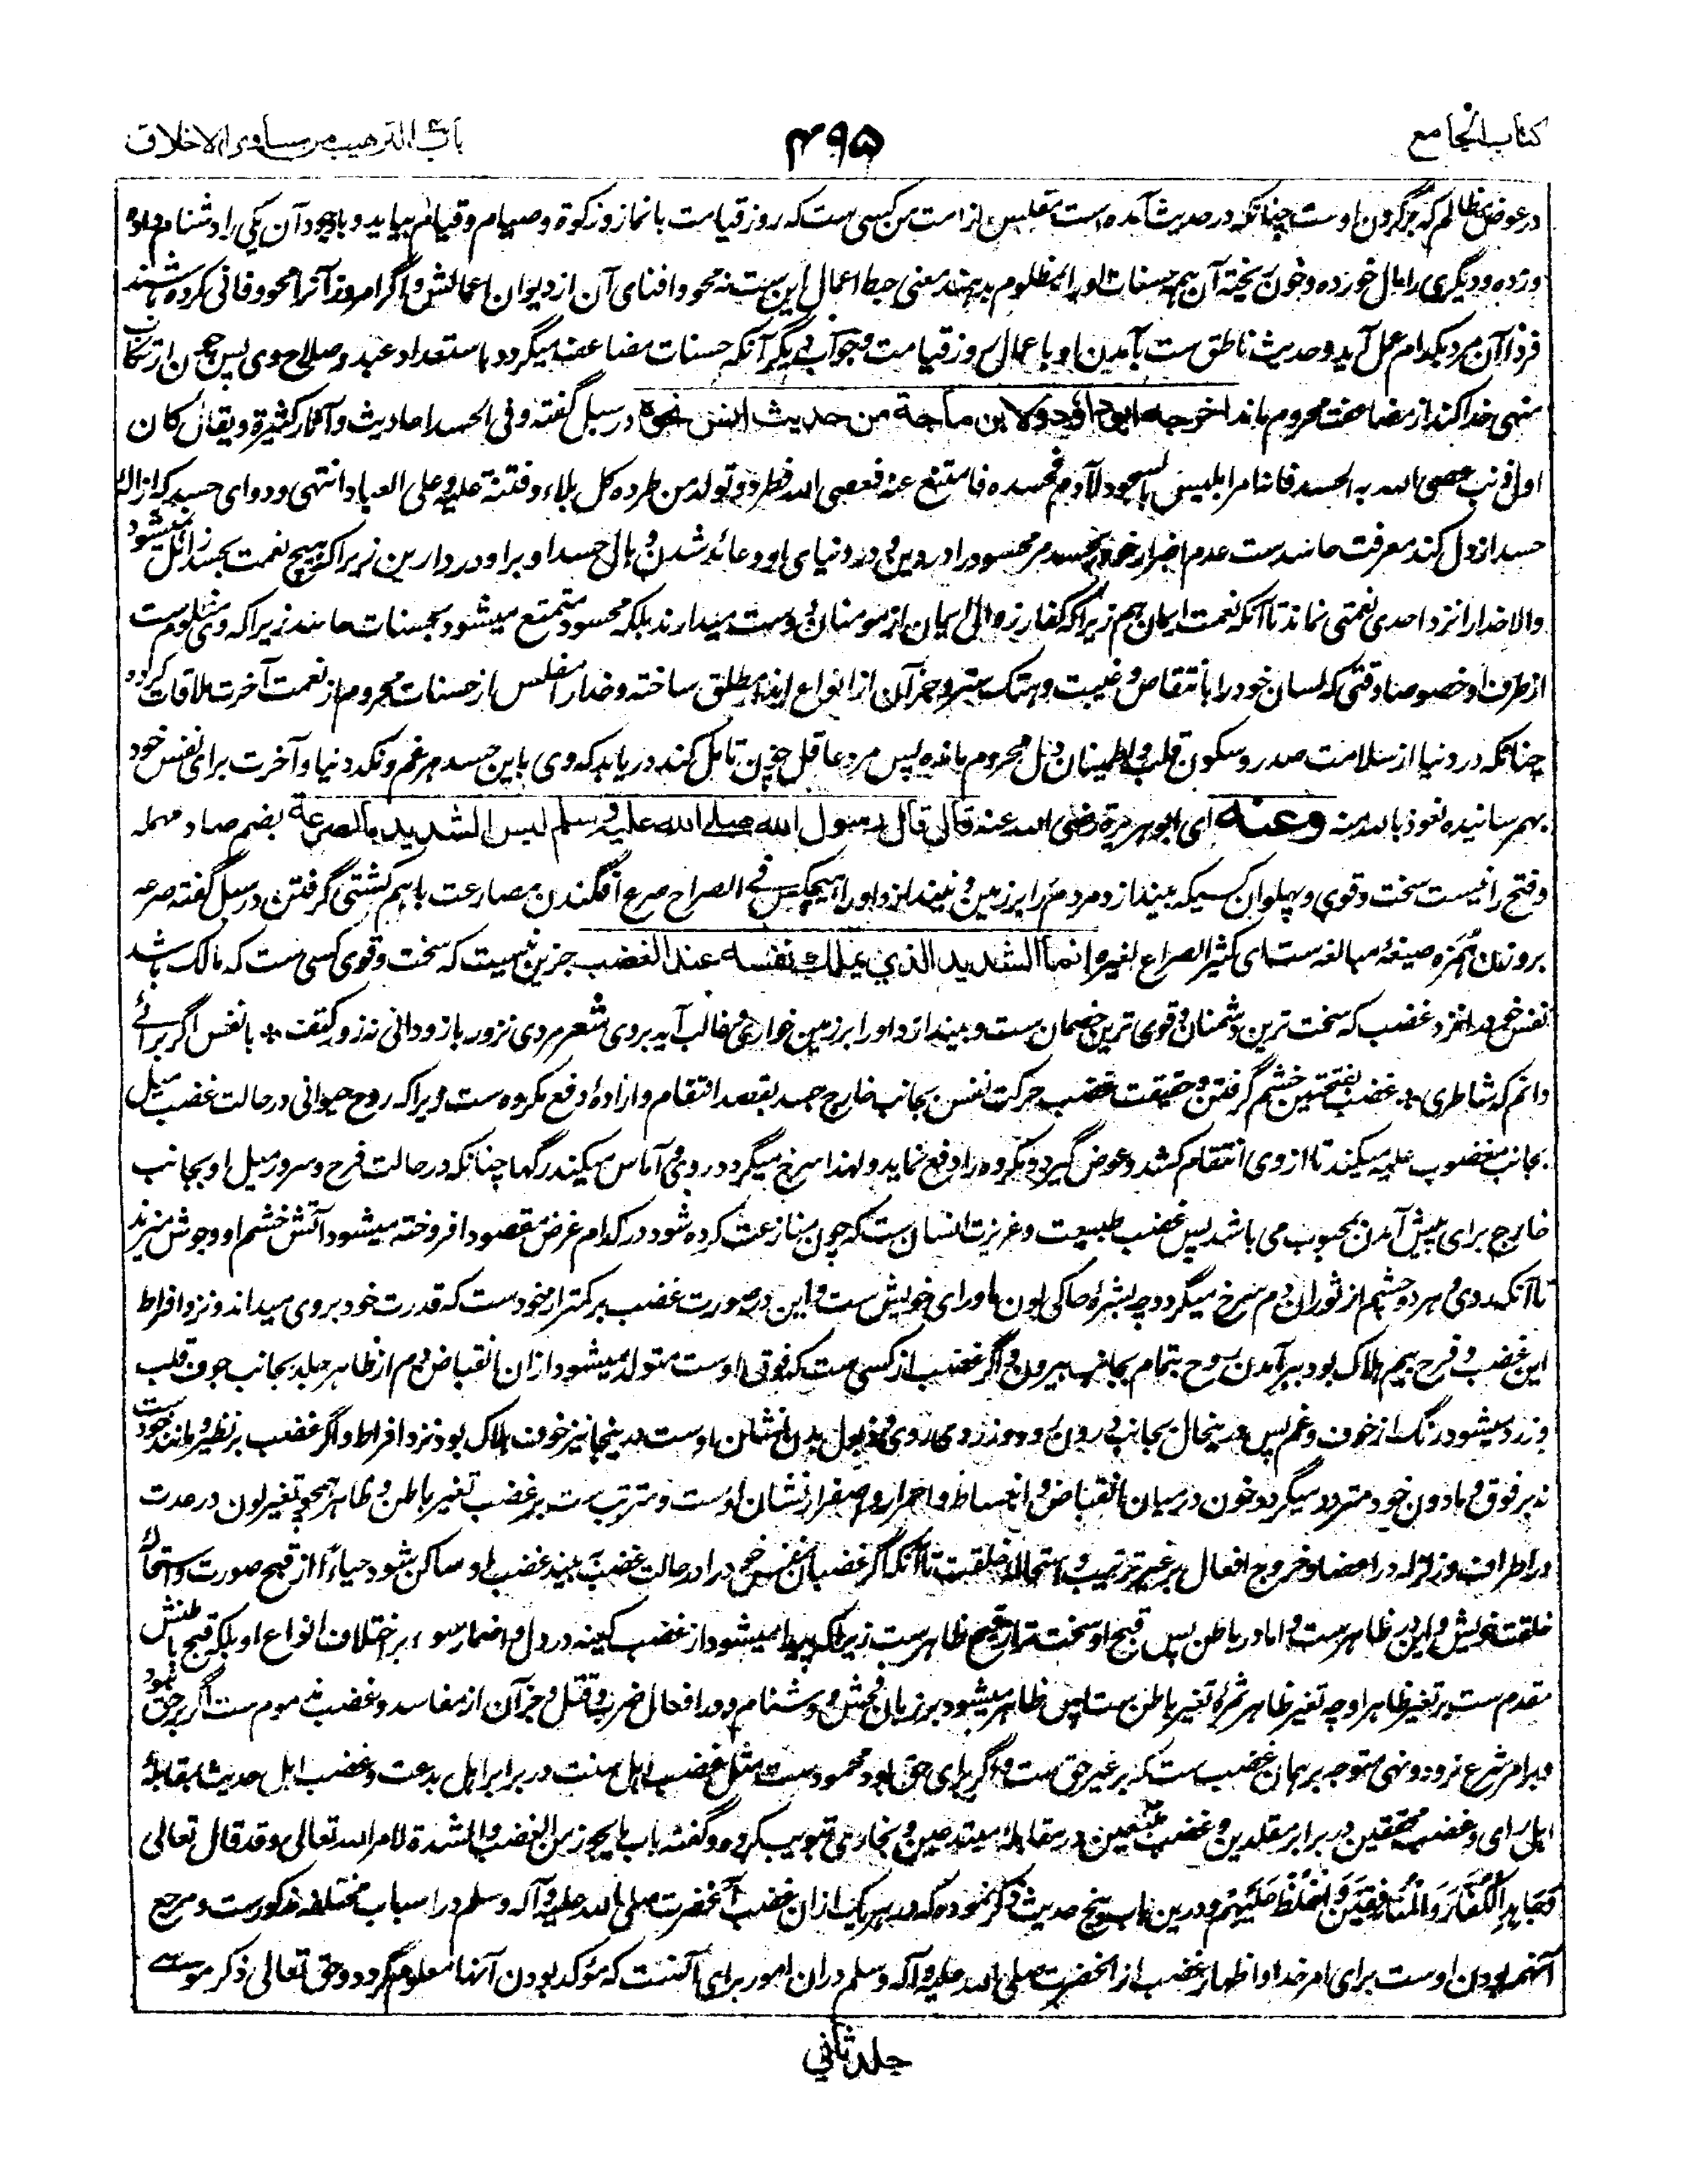 کتاب الجامع
۴۹۵
باب الترهیب من مساوی الاخلاق
در عوض مظالم که بر گردن اوست چنانکه در حدیث آمده است مفلس از امت من کسی ست که روز قیامت با نماز و زکوة و صیام و قیام بیاید و باوجود آن یکی را دشنام داده
و زده و دیگری را مال خورده و خون ریخته آن همه حسنات او را بمظلوم بدهند معنی حبط اعمال این ست نه محو و افنای آن از دیوان اعمالش و اگر امروز آنرا محو و فانی کرده باشند
فردا آن مرد بکدام عمل آید و حدیث ناطق ست بآمدن او با اعمال بروز قیامت و جواب دیگر آنکه حسنات مضاعف میگردد باستعداد عبد و صلاح وی پس چون ارتکاب
منهی خدا کند از مضاعفت محروم ماند اخرجه ابوداؤد ولابن ماجة من حدیث انس نحوه در سبل گفته و فی الحسد احادیث و آثار کثیرة ویقال کان
اول ذنب عصی الله به الحسد فانه امر ابلیس بالسجود لآدم فحسده فامتنع عنه فعصی الله فطرده و تولد من طرده کل بلاء و فتنة علیه و علی العباد انتهی و دوای حسد که ازاله
حسد از دل کند معرفت حاسد ست عدم اضرار خود بحسد مر محسود را در دین و در دنیای او و عائد شدن وبال حسد او بر او در دارین زیرا که هیچ نعمت بحسد زائل نمیشود
والا خدا را نزد احدی نعمتی نماند تا آنکه نعمت ایمان هم زیرا که کفار زوال ایمان از مومنان دوست میدارند بلکه محسود متمتع میشود بحسنات حاسد زیرا که وی مظلوم ست
از طرف او خصوصا وقتی که لسان خود را بانتقاص و غیبت و هتک ستر و جز آن از انواع ایذا مطلق ساخته و خدا را مفلس از حسنات محروم از نعمت آخرت ملاقات کرده
چنانکه در دنیا از سلامت صدر و سکون قلب و اطمینان دل محروم مانده پس مرد عاقل چون تامل کند دریابد که وی باین حسد هر غم و نکد دنیا و آخرت برای نفس خود
بهم رسانیده نعوذ بالله منه وعنه ای ابو هریرة رضی الله عنه قال قال رسول الله صلى الله عليه وسلم لیس الشدید بالصرعة بضم صاد مهمله
و فتح را نیست سخت و قوی و پهلوان کسیکه بیندازد مردم را بر زمین و نیندازد او را هیچکس فی الصراح صرع افگندن مصارعت باهم کشتی گرفتن در سبل گفته صرعه
بر وزن همزه صیغهٔ مبالغه ست ای کثیر الصراع لغیره انما الشدید الذي یملك نفسه عند الغضب جز این نیست که سخت و قوی کسی ست که مالک باشد
نفس خود را نزد غضب که سخت ترین دشمنان و قوی ترین خصمان ست و بیندازد او را بر زمین خواری و غالب آید بر وی شعر مردی نزور بازو دانی نه زور کتف * با نفس اگر برائے
دانم که شاطری * غضب بفتحتین خشم گرفتن و حقیقت غضب حرکت نفس بجانب خارج جسد بقصد انتقام و ارادهٔ دفع مکروه ست ویرا که روح حیوانی در حالت غضب میل
بجانب مغضوب علیه میکند تا از وی انتقام کشد و عوض گیرد و مکروه را دفع نماید و لهذا سرخ میگردد روی و آماس میکند رگها چنانکه در حالت فرح و سرور میل او بجانب
خارج برای پیش آمدن محبوب می باشد پس غضب طبیعت و غریزت انسان ست که چون منازعت کرده شود در کدام غرض مقصود افروخته میشود آتش خشم او و جوش میزند
تا آنکه روی و هر دو چشم از ثوران دم سرخ میگردد چه بشره حاکی لون ماورای خویش ست و این در صورت غضب بر کمتر از خود ست که قدرت خود بر وی میداند و نزد افراط
این غضب و فرح بیم هلاک بود ببر آمدن روح بتمام بجانب بیرون و اگر غضب از کسی ست که فوق اوست متولد میشود از ان انقباض دم از ظاهر جلد بجانب جوف قلب
و زرد میشود رنگ از خوف و غم پس درینحال بجانب درون رود و زردی روی و ذبول بدن نشان اوست درینجا نیز خوف هلاک بود نزد افراط و اگر غضب بر نظیر و مانند خود ست
نه بر فوق و مادون خود متردد میگردد خون در میان انقباض و انبساط و احمرار و اصفرار نشان اوست و مترتب ست بر غضب تغیر باطن و ظاهر همچو تغیر لون و رعدت
در اطراف و زلزله در اعضا و خروج افعال بر غیر ترتیب و استحالهٔ خلقت تا آنکه اگر غضبان نفس خود را در حالت غضب بیند غضب او ساکن شود حیاءً از قبح صورت و استحالهٔ
خلقت خویش و این در ظاهر ست و اما در باطن پس قبح او سخت تر از قبح ظاهر ست زیرا که پیدا میشود از غضب کینه در دل و اضمار سوء بر اختلاف انواع او بلکه قبح باطنش
مقدم ست بر تغیر ظاهر او چه تغیر ظاهر ثمرهٔ تغیر باطن ست پس ظاهر میشود بر زبان فحش و دشنام و در افعال ضرب و قتل و جز آن از مفاسد و غضب مذموم ست اگر بر حق نبود
و بر امر شرع نرود و نهی متوجه بر همان غضب ست که بر غیر حق ست و اگر برای حق بود محمود ست مثل غضب اهل سنت در برابر اهل بدعت و غضب اهل حدیث بمقابلهٔ
اهل رای و غضب محققین در برابر مقلدین و غضب متبعین در مقابلهٔ مبتدعین و بخاری تبویب کرده و گفته باب ما یجوز من الغضب والشدة لامر الله تعالی وقد قال تعالی
جَاهِدِ الْكُفَّارَ وَالْمُنَافِقِينَ وَاغْلُظْ عَلَيْهِمْ و درین باب پنج حدیث ذکر نموده که در هر یک از ان غضب آنحضرت صلی الله علیه و آله وسلم در اسباب مختلفه مذکور ست و مرجع
آنهمه بودن اوست برای امر خدا و اظهار غضب از آنحضرت صلی الله علیه و آله وسلم دران امور برای آنست که مؤکد بودن آنها معلوم گردد و حق تعالی ذکر موسے
جلد ثانی